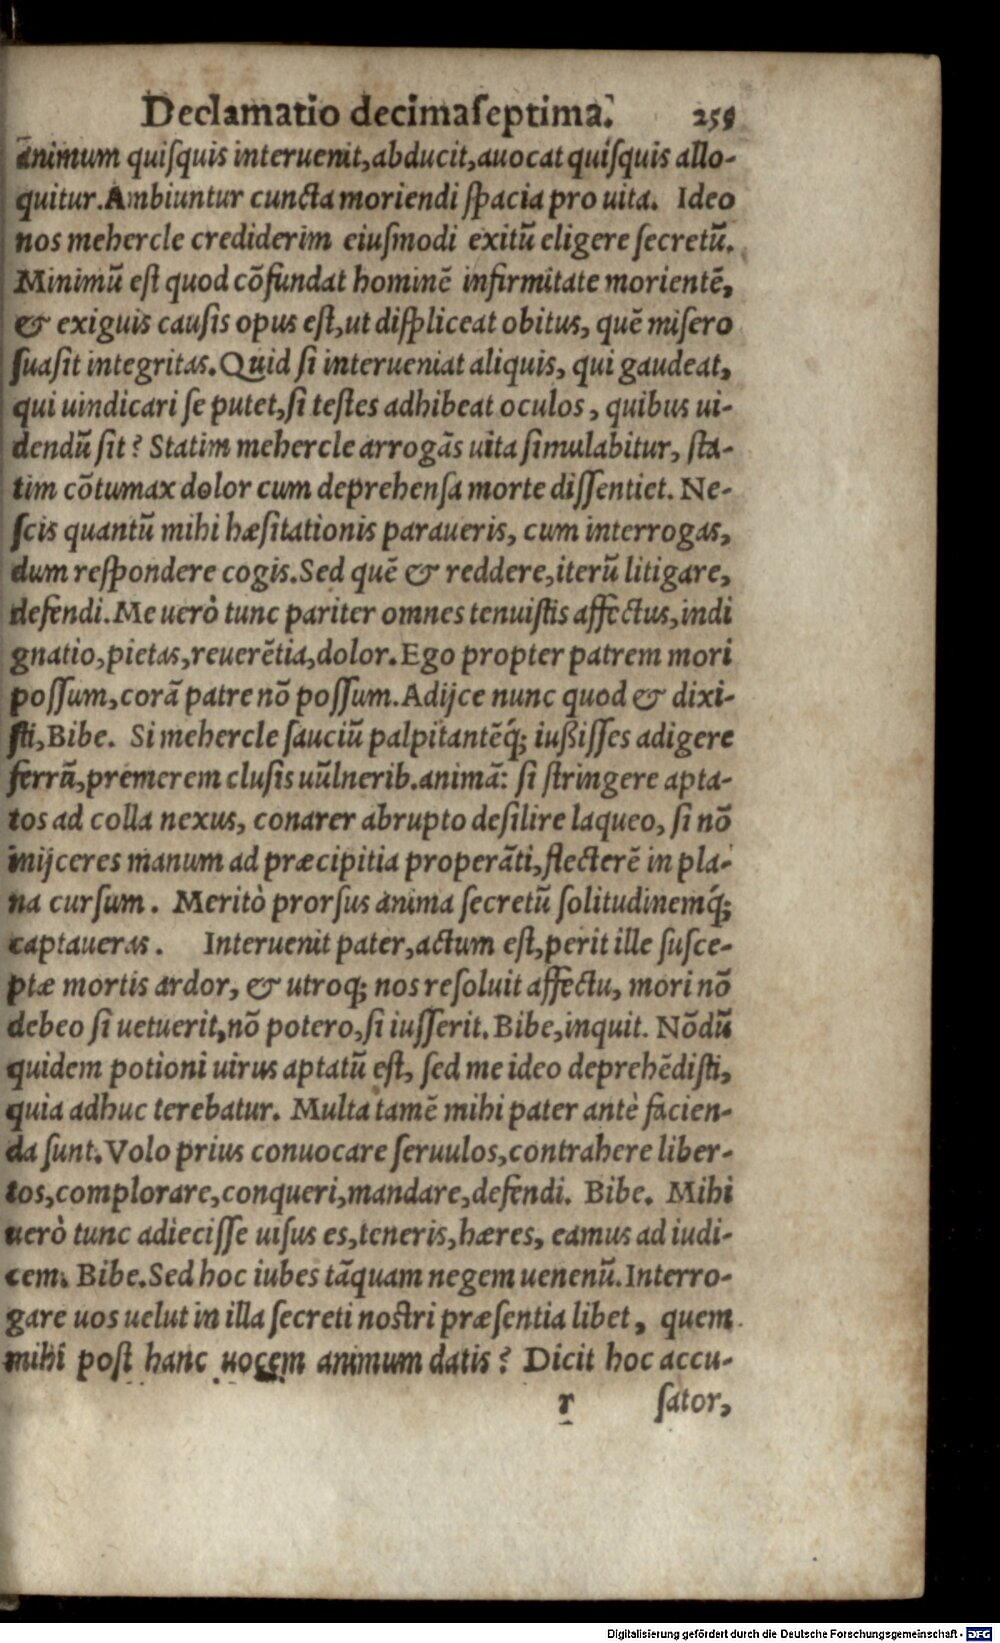 Declamatio decimaſeptima. 259
animum quiſquis interuenit, abducit, auocat quiſquis allo-
quitur. Ambiuntur cuncta moriendi ſpacia pro uita. Ideo
nos mehercle crediderim eiuſmodi exitũ eligere ſecretũ.
Minimũ eſt quod cõfundat hominẽ infirmitate morientẽ,
& exiguis cauſis opus eſt, ut diſpliceat obitus, quẽ miſero
ſuaſit integritas. Quid ſi interueniat aliquis, qui gaudeat,
qui uindicari ſe putet, ſi teſtes adhibeat oculos, quibus ui-
dendũ ſit? Statim mehercle arrogãs uita ſimulabitur, ſta-
tim cõtumax dolor cum deprehenſa morte diſſentiet. Ne-
ſcis quantũ mihi hæſitationis paraueris, cum interrogas,
dum reſpondere cogis. Sed quẽ & reddere, iterũ litigare,
defendi. Me uerò tunc pariter omnes tenuiſtis affectus, indi
gnatio, pietas, reuerẽtia, dolor. Ego propter patrem mori
poſſum, corã patre nõ poſſum. Adijce nunc quod & dixi-
ſti, Bibe. Si mehercle ſauciũ palpitantẽq́; iußiſſes adigere
ferrũ, premerem cluſis uulnerib. animã: ſi ſtringere apta-
tos ad colla nexus, conarer abrupto deſilire laqueo, ſi nõ
inijceres manum ad præcipitia properãti, flecterẽ in pla-
na curſum. Meritò prorſus anima ſecretũ ſolitudinemq́;
captaueras. Interuenit pater, actum eſt, perit ille ſuſce-
ptæ mortis ardor, & utroq; nos reſoluit affectu, mori nõ
debeo ſi uetuerit, nõ potero, ſi iuſſerit. Bibe, inquit. Nõdũ
quidem potioni uirus aptatũ eſt, ſed me ideo deprehẽdiſti,
quia adhuc terebatur. Multa tamẽ mihi pater antè facien-
da ſunt. Volo prius conuocare ſeruulos, contrahere liber-
tos, complorare, conqueri, mandare, defendi. Bibe. Mihi
uerò tunc adieciſſe uiſus es, teneris, hæres, eamus ad iudi-
cem. Bibe. Sed hoc iubes tãquam negem uenenũ. Interro-
gare uos uelut in illa ſecreti noſtri præſentia libet, quem
mihi poſt hanc uocem animum datis? Dicit hoc accu-
r ſator,
Digitalisierung gefördert durch die Deutsche Forschungsgemeinschaft - DFG